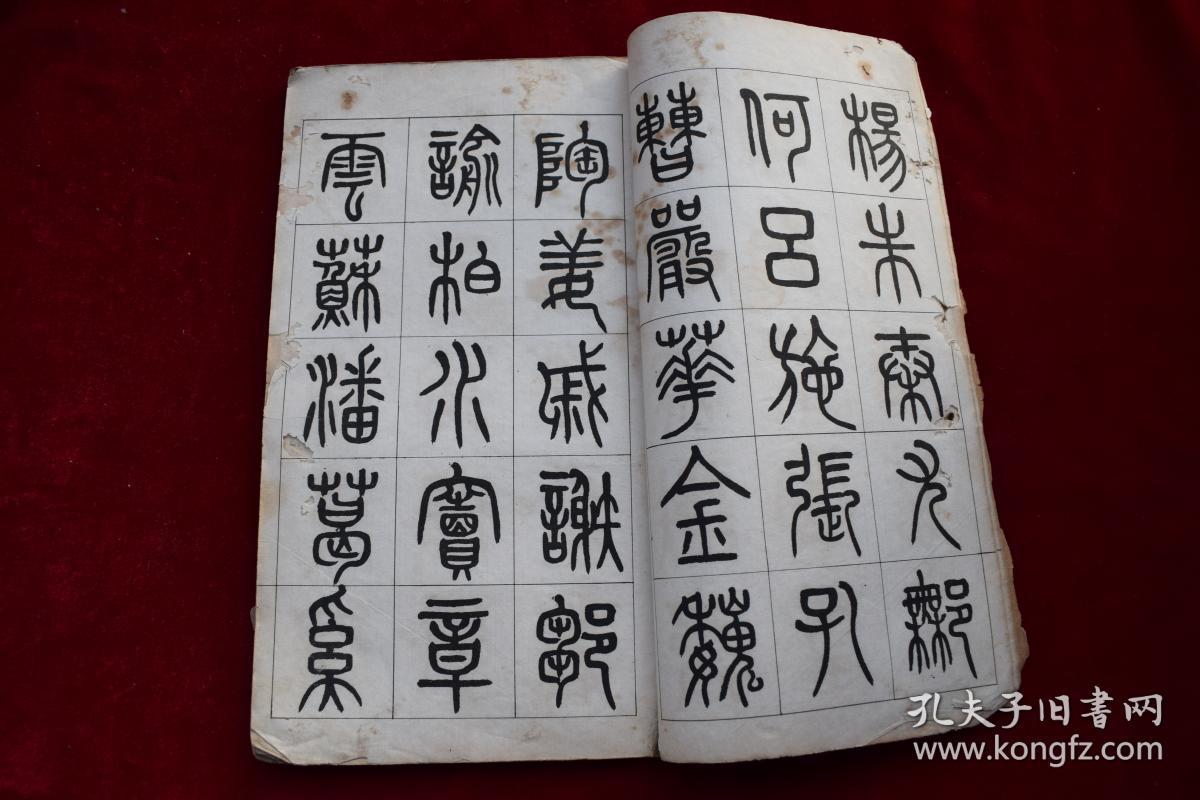 楊朱秦尤鄦
何呂施張孔
曹嚴華金魏
陶姜戚謝鄒
諭柏水竇章
雲蘇潘葛奚
孔夫子旧書网
www.kongfz.com